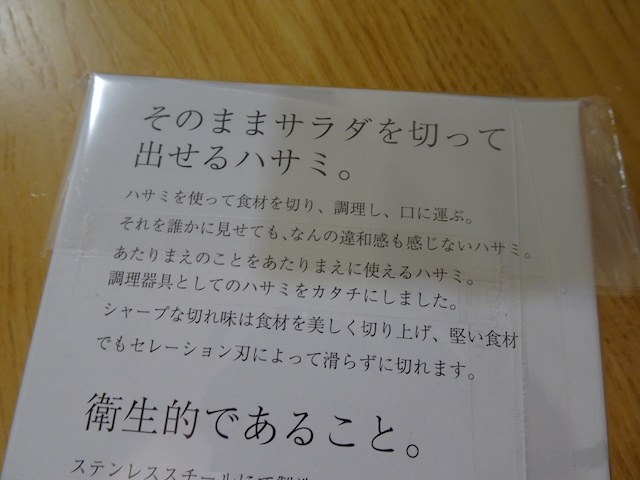 そのままサラダを切って
出せるハサミ。
ハサミを使って食材を切り、調理し、口に運ぶ。
それを誰かに見せても、なんの違和感も感じないハサミ。
あたりまえのことをあたりまえに使えるハサミ。
調理器具としてのハサミをカタチにしました。
シャープな切れ味は食材を美しく切り上げ、堅い食材
でもセレーション刃によって滑らずに切れます。
衛生的であること。
ステンレススチールにて製造